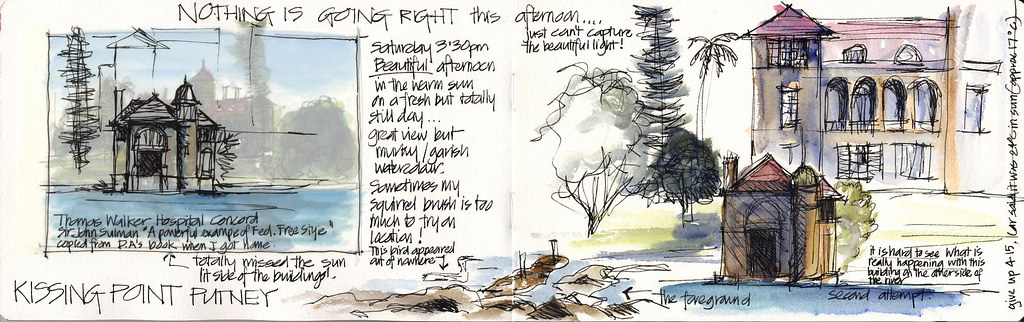 NOTHING IS GOING RIGHT this afternoon....
just can't capture
the beautiful light!
Saturday 3:30pm
Beautiful afternoon
in the warm sun
on a fresh but totally
still day...
great view but
murky/garish
watercolour.
Sometimes my
squirrel brush is too
much to try on
location!
This bird appeared
out of nowhere
Thomas Walker Hospital Concord
Sir John Sulman "A powerful example of Fed. Free Style"
copied from P.A's book when I got home.
totally missed the sun
lit side of the buildings!
KISSING POINT PUTNEY
the foreground
second attempt.
it is hard to see what is
really happening with this
building on the other side of
the river
give up 4.15. (car said it was 21°C in sun (approx 17°C)